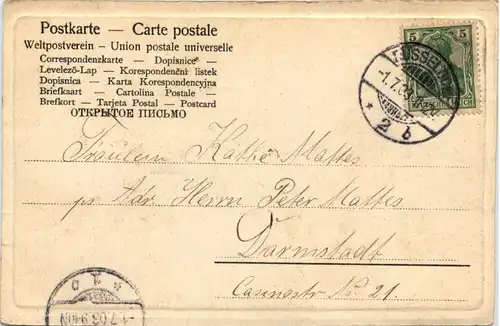 Postkarte — Carte postale
Weltpostverein — Union postale universelle
Correspondenzkarte — Dopisnice —
Levelező-Lap — Korespondenční listek
Dopisnica — Karta Korespondencyjna
Briefkaart — Cartolina Postale —
Brefkort — Tarjeta Postal — Postcard
ОТКРЫТОЕ ПІСЬМО
5 5
Fräulein Käthe Mattes
pr. Adr. Herrn Peter Mattes
Darmstadt
Casinostr No. 21.